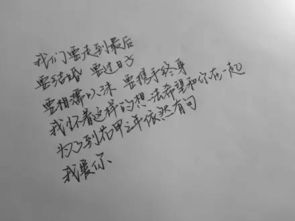 我们要走到最后
要结婚 要过日子
要相濡以沫 要携手终身
我怀着这样的想法希望和你在一起
为了到花甲之年依然有问
我爱你、